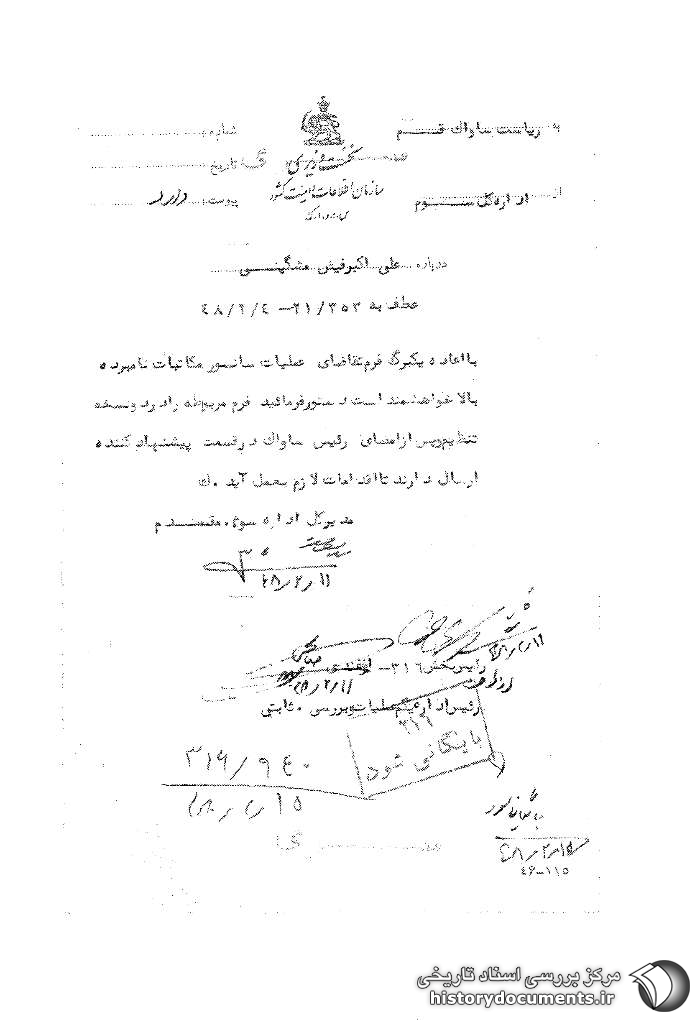 به ریاست ساواک قم
شماره
نخست وزیری
تاریخ
سازمان اطلاعات و امنیت کشور
از اداره کل سوم
پیوست دارد
درباره علی اکبر فیض مشگینی
عطف به ۲۱/۳۵۳ – ۴۸/۲/۴
با اعاده یکبرگ فرم تقاضای عملیات سانسور مکاتبات نامبرده
بالا خواهشمند است دستور فرمائید فرم مربوطه را در دو نسخه
تنظیم و پس از امضای رئیس ساواک در قسمت پیشنهاد کننده
ارسال دارند تا اقدامات لازم بعمل آید. ک
مدیر کل اداره سوم. مقدم
۴۸/۲/۱۱
۴۸/۲/۱۱
رئیس بخش ۳۱۶-
۴۸/۲/۱۱
رئیس اداره یکم عملیات و بررسی. ثابتی
۳۱۶
بایگانی شود
۳۱۶/۹۴۰
۱۵/۲/۴۸
بایگانی شود
۴۸/۲/۱۵
۴۶-۱۱۵
مرکز بررسی اسناد تاریخی
historydocuments.ir